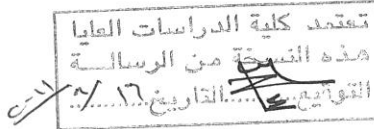 تعتمد كلية الدراسات العليا
هذه النسخة من الرسالــة
التوقيع............التاريخ ١٦/٨/